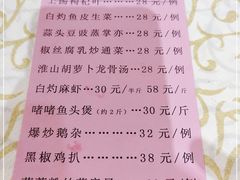 上汤枸杞叶……28 元/例
白灼鱼皮生菜……28 元/例
蒜头豆豉蒸掌亦…28 元/例
椒丝腐乳炒通菜…28 元/例
淮山胡萝卜龙骨汤…28 元/例
白灼麻虾…30 元/半斤 58 元/斤
啫啫鱼头煲（约2斤）…30 元/斤
爆炒鹅杂…………32 元/例
黑椒鸡扒…………38 元/例